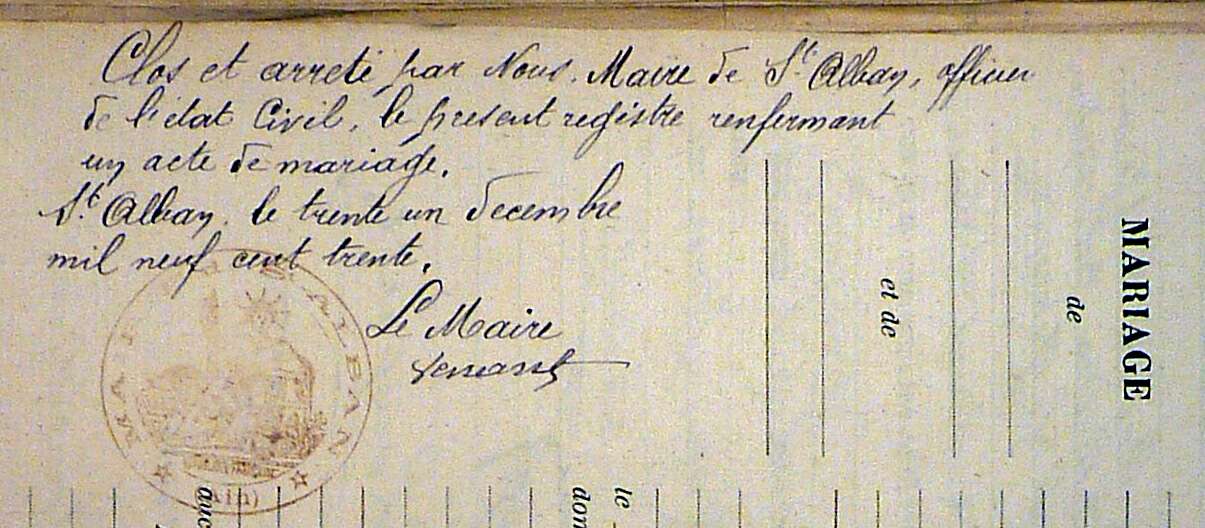 Clos et arrêté par Nous. Maire de St. Alban, officier
de l'état Civil, le present registre renfermant
un acte de mariage.
St. Alban. le trente un decembre
mil neuf cent trente.
Le Maire
ALBAN
(Ain)
MARIAGE
de
et de
le
don
auc